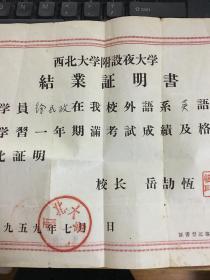 西北大学附設夜大学
結業証明書
学員徐民政在我校外語系英語
学習一年期滿考試成績及格
此証明
校长 岳劼恆
九五九年七月 日